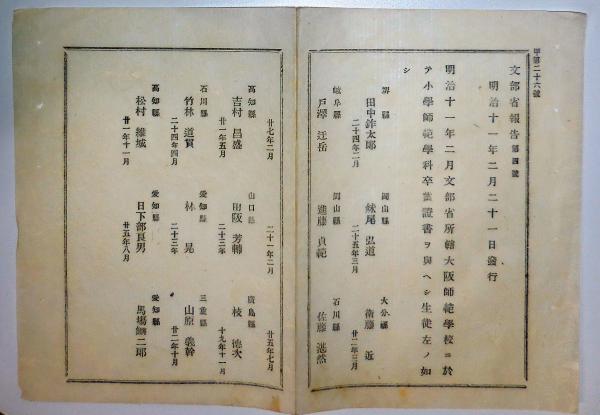 甲第二十六號
文部省報告 第四號
明治十一年二月二十一日發行
明治十一年二月文部省所轄大阪師範學校ニ於
テ小學師範學科卒業證書ヲ與ヘシ生徒左ノ如
シ
堺縣 岡山縣 大分縣
田中鉾太郎 妹尾弘道 衛藤近
二十四年二月 二十五年三月 廿二年三月
岐阜縣 岡山縣 石川縣
戸澤迂岳 進藤貞範 佐藤湛然
廿七年二月 二十一年二月 廿五年七月
高知縣 山口縣 廣島縣
吉村昌盛 田阪芳輔 枝德次
廿一年五月 二十三年 十九年十一月
石川縣 愛知縣 三重縣
竹林道賢 林晃 山原義幹
二十四年四月 二十三年 廿二年十月
高知縣 愛知縣 愛知縣
松村雄城 日下部良男 馬場鍋二郎
廿一年十一月 廿五年八月